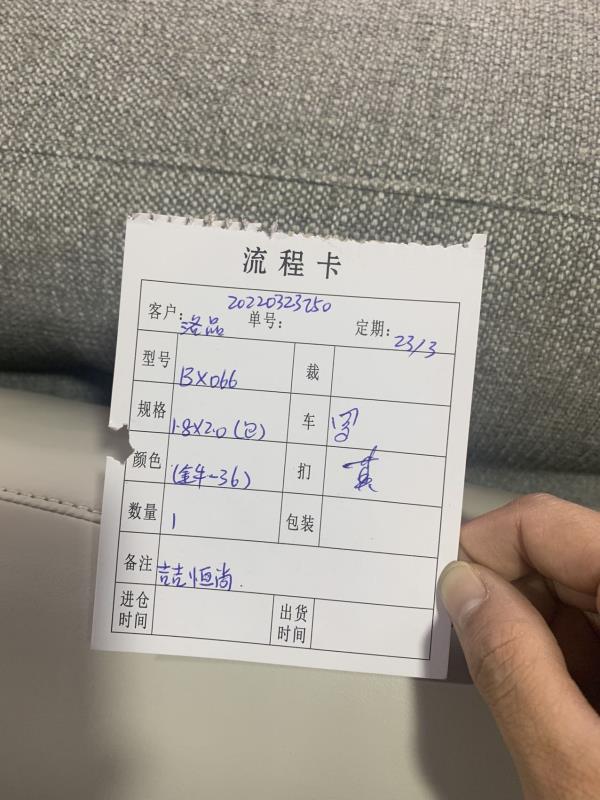 流程卡
20220323250
客户：洛品 单号： 定期：23/3
型号 BX066 裁
规格 1.8X2.0（包） 车
颜色 -36） 扪
数量 1 包装
备注 喆恒尚.
进仓时间 出货时间